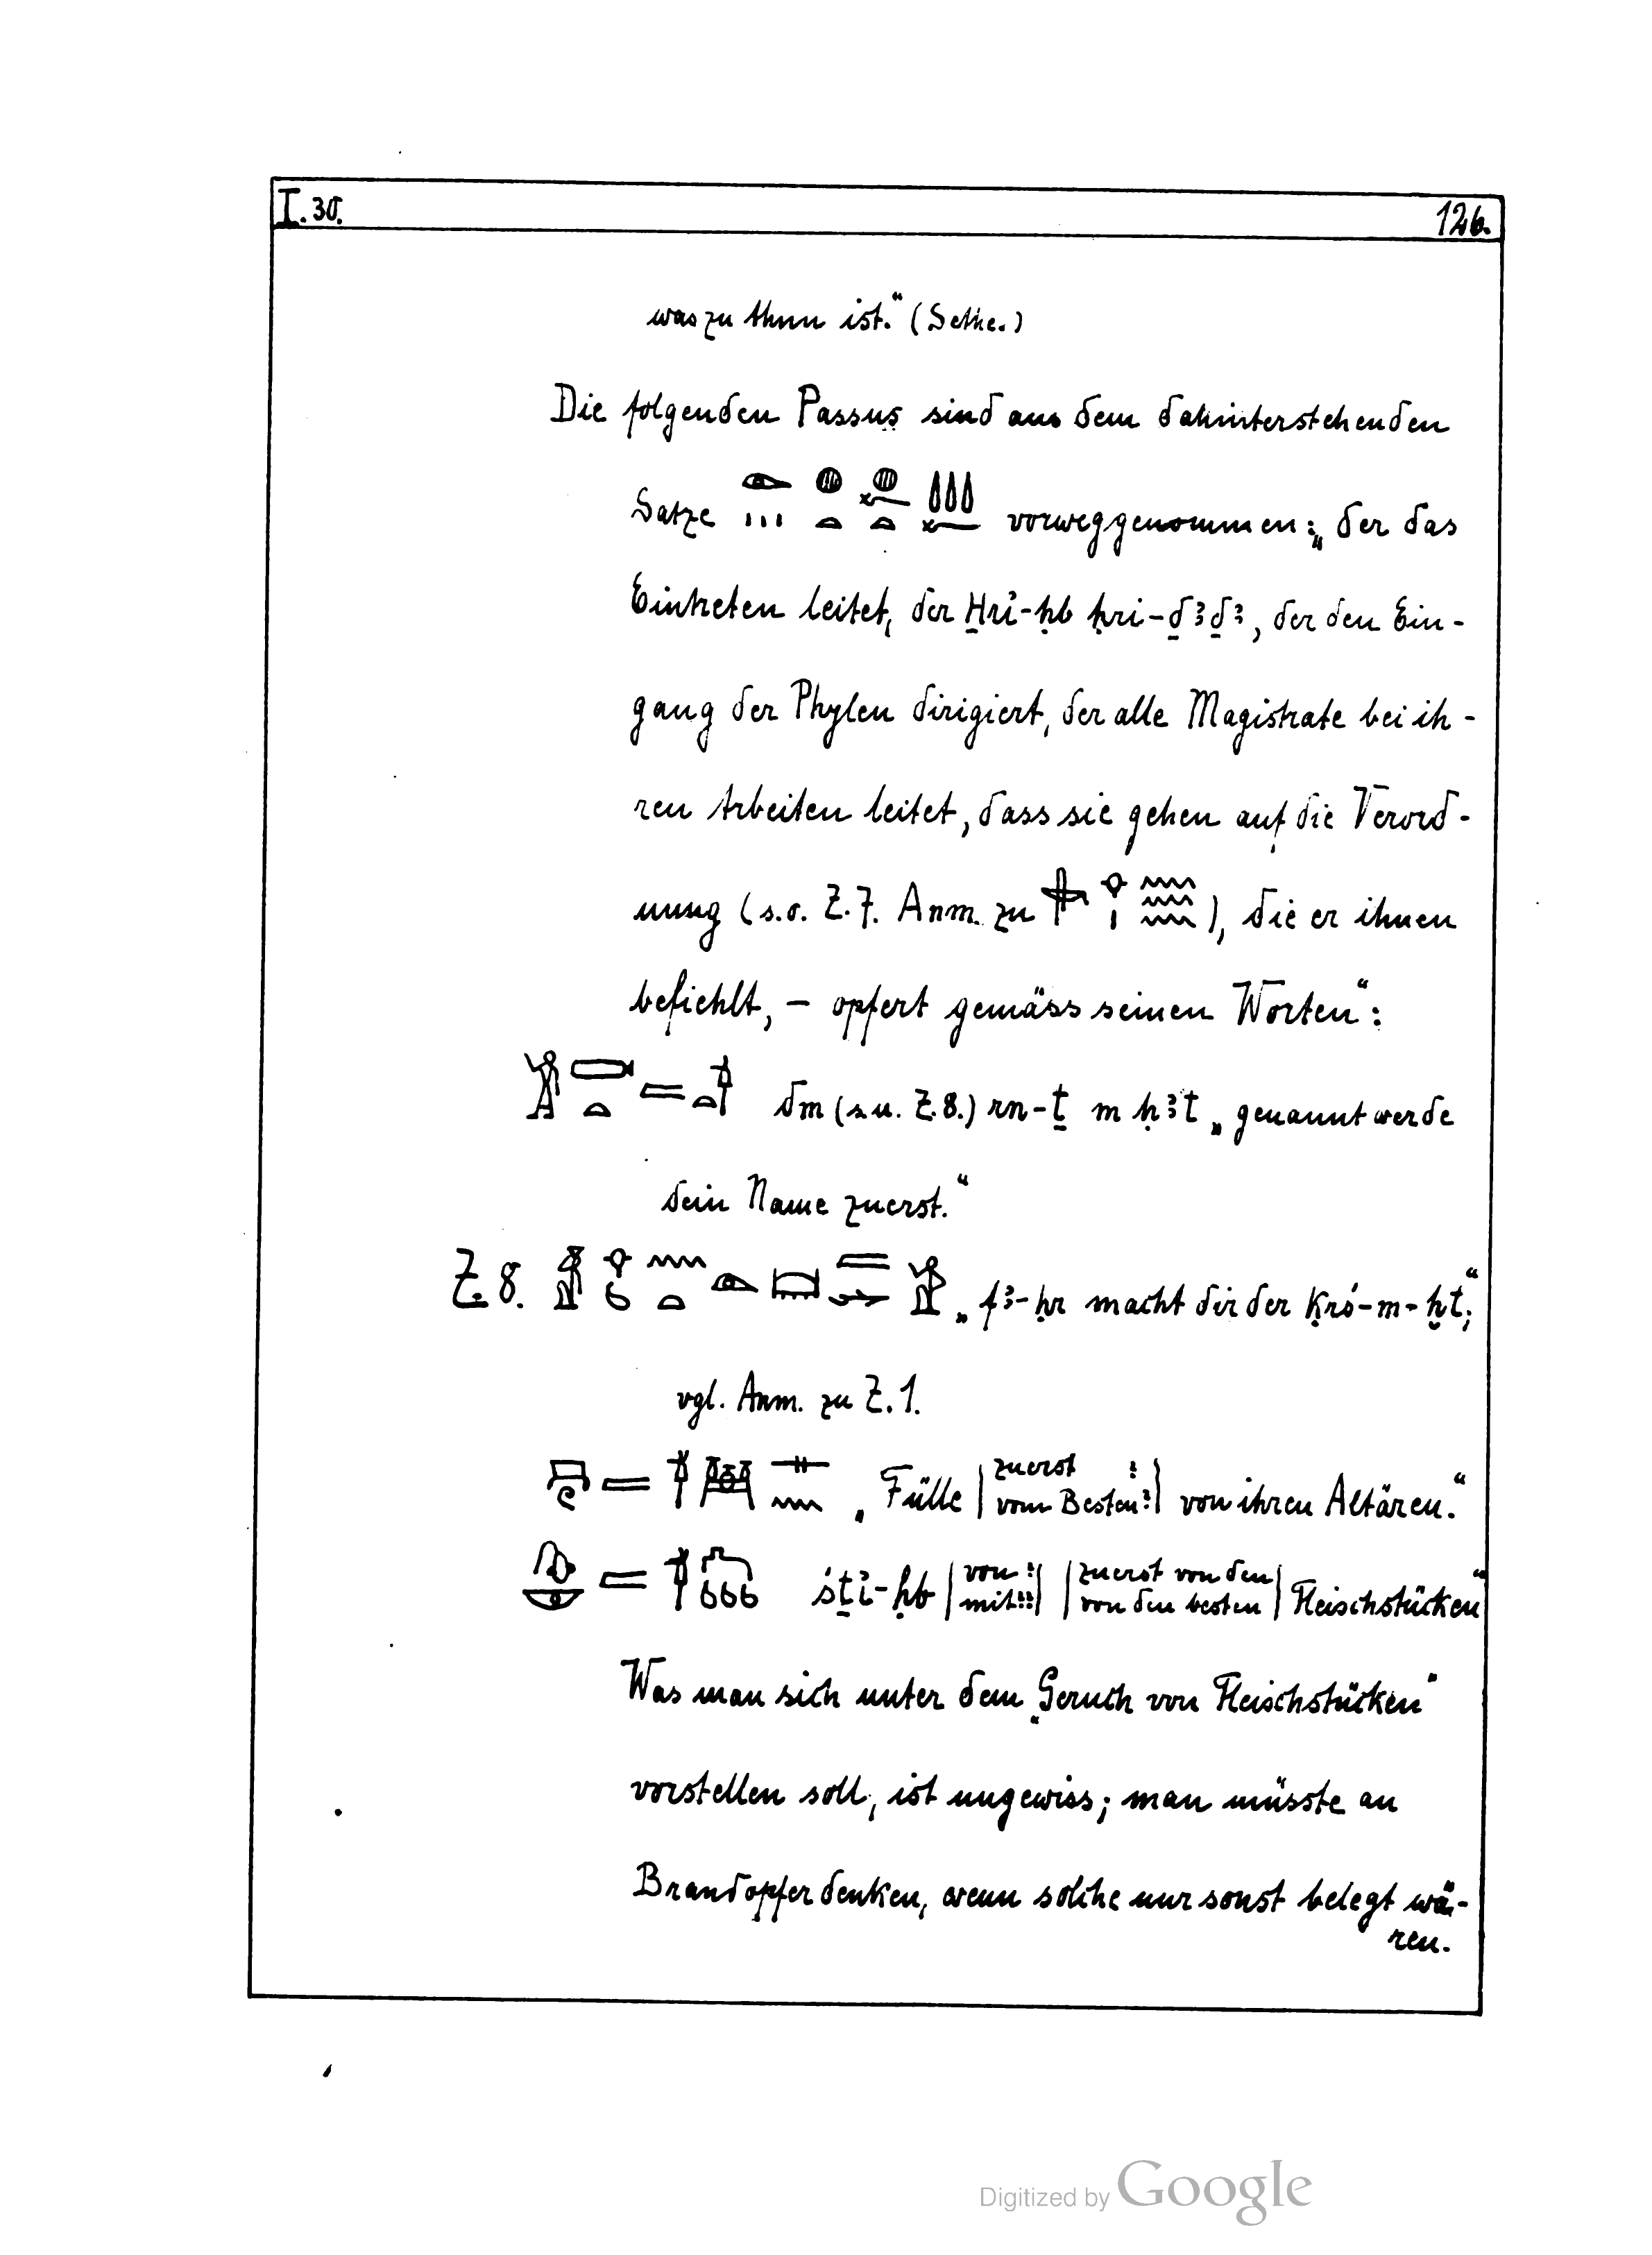 I. 30. 126.
was zu thun ist.“ (Sethe.)
Die folgenden Passus sind aus dem dahinterstehenden
Satze vorweggenommen: „der das
Eintreten leitet, der H̱ri҆-ḥb ḥri-ḏꜣḏꜣ, der den Ein-
gang der Phylen dirigiert, der alle Magistrate bei ih-
ren Arbeiten leitet, dass sie gehen auf die Verord-
nung (s. o. Z. 7. Anm. zu ), die er ihnen
befiehlt, – opfert gemäss seinen Worten“:
dm (s. u. Z. 8.) rn-ṯ m ḥꜣt „genannt werde
dein Name zuerst.“
Z. 8. „fꜣ-ḥr macht dir der Ḳrś-m-ḫt“;
vgl. Anm. zu Z. 1.
„Fülle | zuerst ? / vom Besten ? | von ihren Altären.“
śṯi҆-ḥb | von ? / mit ?? | | zuerst von den / von den besten | Fleischstücken“
Was man sich unter dem „Geruch von Fleischstücken“
vorstellen soll, ist ungewiss; man müsste an
Brandopfer denken, wenn solche nur sonst belegt wä-
ren.
Digitized by Google